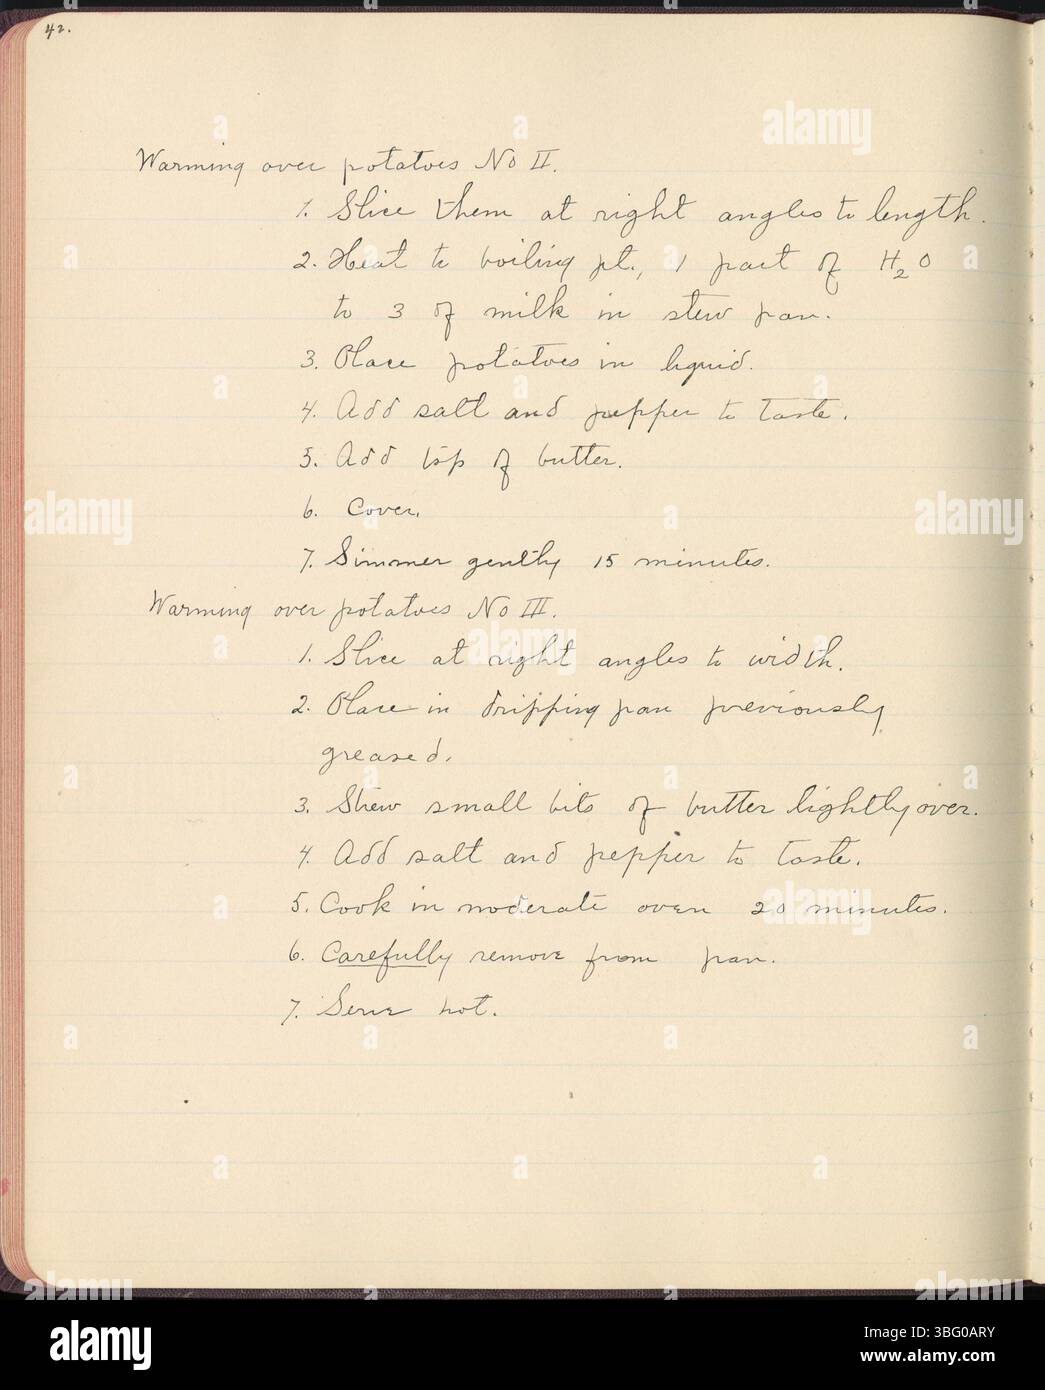 42.
Warming over potatoes No II.
1. Slice them at right angles to length.
2. Heat to boiling pt., 1 part of H2O
to 3 of milk in stew pan.
3. Place potatoes in liquid.
4. Add salt and pepper to taste.
5. Add tsp of butter.
6. Cover.
7. Simmer gently 15 minutes.
Warming over potatoes No III.
1. Slice at right angles to width.
2. Place in dripping pan previously
greased.
3. Strew small bits of butter lightly over.
4. Add salt and pepper to taste.
5. Cook in moderate oven 20 minutes.
6. Carefully remove from pan.
7. Serve hot.
alamy
Image ID: 3BG0ARY
www.alamy.com